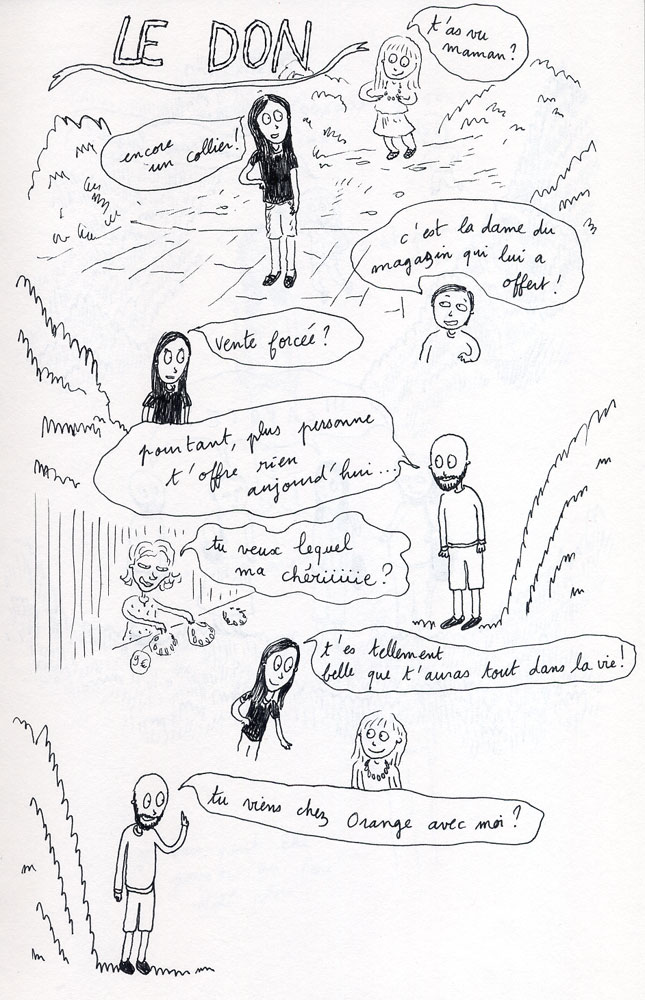 LE DON
t'as vu
maman?
encore
un collier!
c'est la dame du
magazin qui lui a
offert!
vente forcée?
pourtant, plus personne
t'offre rien
aujourd'hui...
tu veux lequel
ma chériiiiie?
9€
t'es tellement
belle que t'auras tout dans la vie!
tu viens chez Orange avec moi?